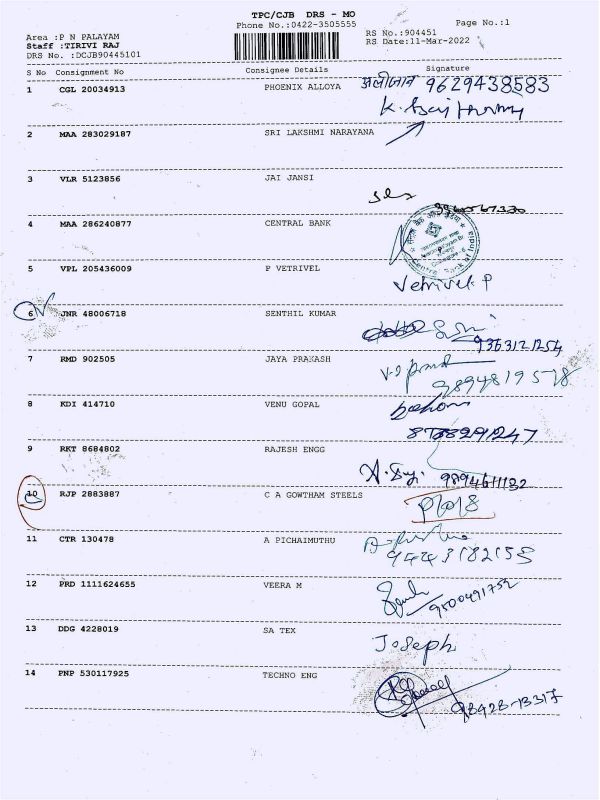 TPC/CJB DRS - MO
Phone No.:0422-3505555
Page No.:1
Area :P N PALAYAM
Staff :TIRIVI RAJ
DRS No. :DCJB90445101
RS No.:904451
RS Date:11-Mar-2022
S No Consignment No Consignee Details Signature
1 CGL 20034913 PHOENIX ALLOYA 9629438583
2 MAA 283029187 SRI LAKSHMI NARAYANA
3 VLR 5123856 JAI JANSI
4 MAA 286240877 CENTRAL BANK
5 VPL 205436009 P VETRIVEL
Vetrivel. P
6 JNR 48006718 SENTHIL KUMAR
9363121254
7 RMD 902505 JAYA PRAKASH
9894819578
8 KDI 414710 VENU GOPAL
9 RKT 8684802 RAJESH ENGG
9894611132
10 RJP 2883887 C A GOWTHAM STEELS
11 CTR 130478 A PICHAIMUTHU
9443182155
12 PRD 1111624655 VEERA M
9500491752
13 DDG 4228019 SA TEX
Joseph
14 PNP 530117925 TECHNO ENG
98428-13317